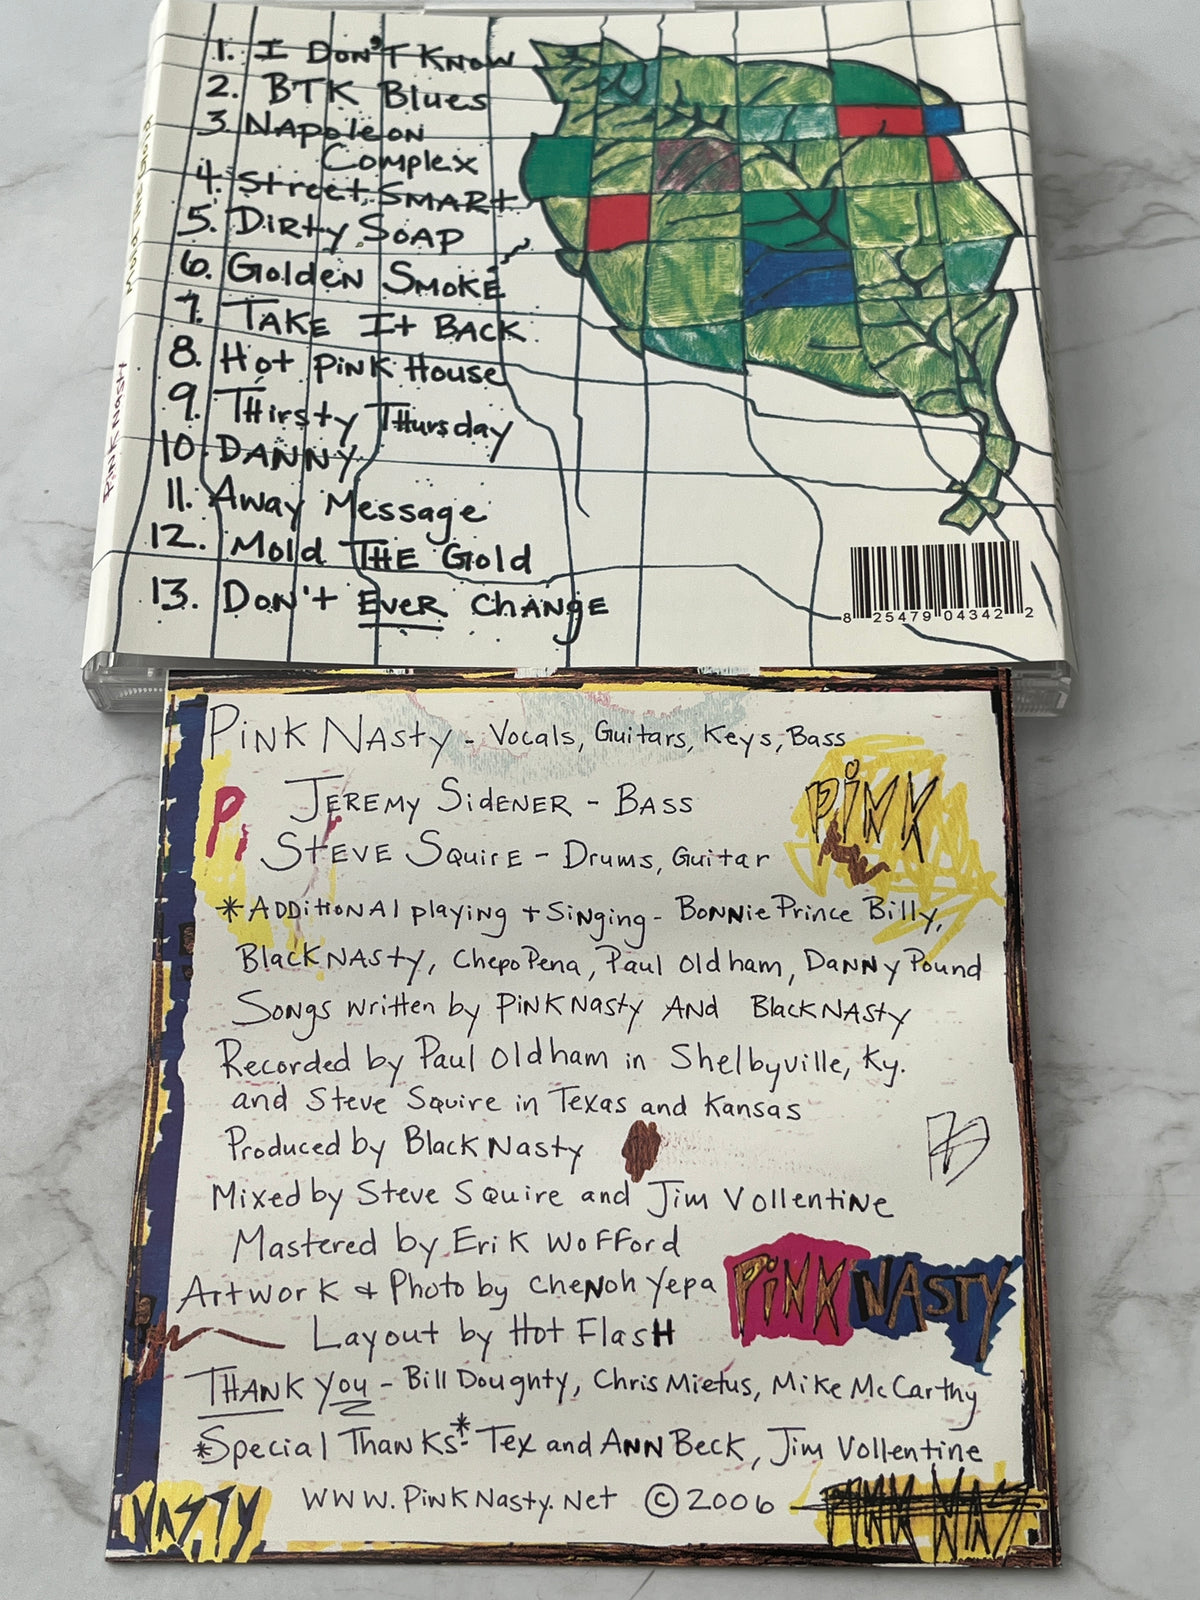 1. I DON'T KNOW
2. BTK Blues
3. NApoleon
Complex
4. Street SMARt
5. DiRty SOAP
6. Golden SmoKE
7. TAKE It BACK
8. Hot PiNK House
9. THirsty THursday
10. DANNY
11. Away Message
12. Mold THE Gold
13. DoN't EVER CHANGE
PiNK NAsty
8 25479 04342 2
PiNK NAsty - Vocals, Guitars, Keys, Bass
JEREMY SidENER - BASS
STEVE SquirE - Drums, Guitar
P
PiNK
*ADDitioNAl playing + SiNging - BoNNie Prince Billy,
BlacKNAsty, ChepoPena, Paul Oldham, DaNNy Pound
Songs written by PiNKNasty AND BlackNASty
Recorded by Paul Oldham in Shelbyville, Ky.
and Steve Squire in Texas and Kansas
Produced by Black Nasty
Mixed by Steve Squire and Jim VollentiNe
Mastered by EriK WoFFord
Artwork & Photo by CheNoh Yepa
PiNK NASTY
Layout by Hot FlasH
THANK YOU - Bill Doughty, Chris Mietus, Mike McCarthy
*Special ThanKs* - Tex and ANN BecK, Jim Vollentine
NASTY
WWW.PiNKNasty.Net © 2006
PINK NAS